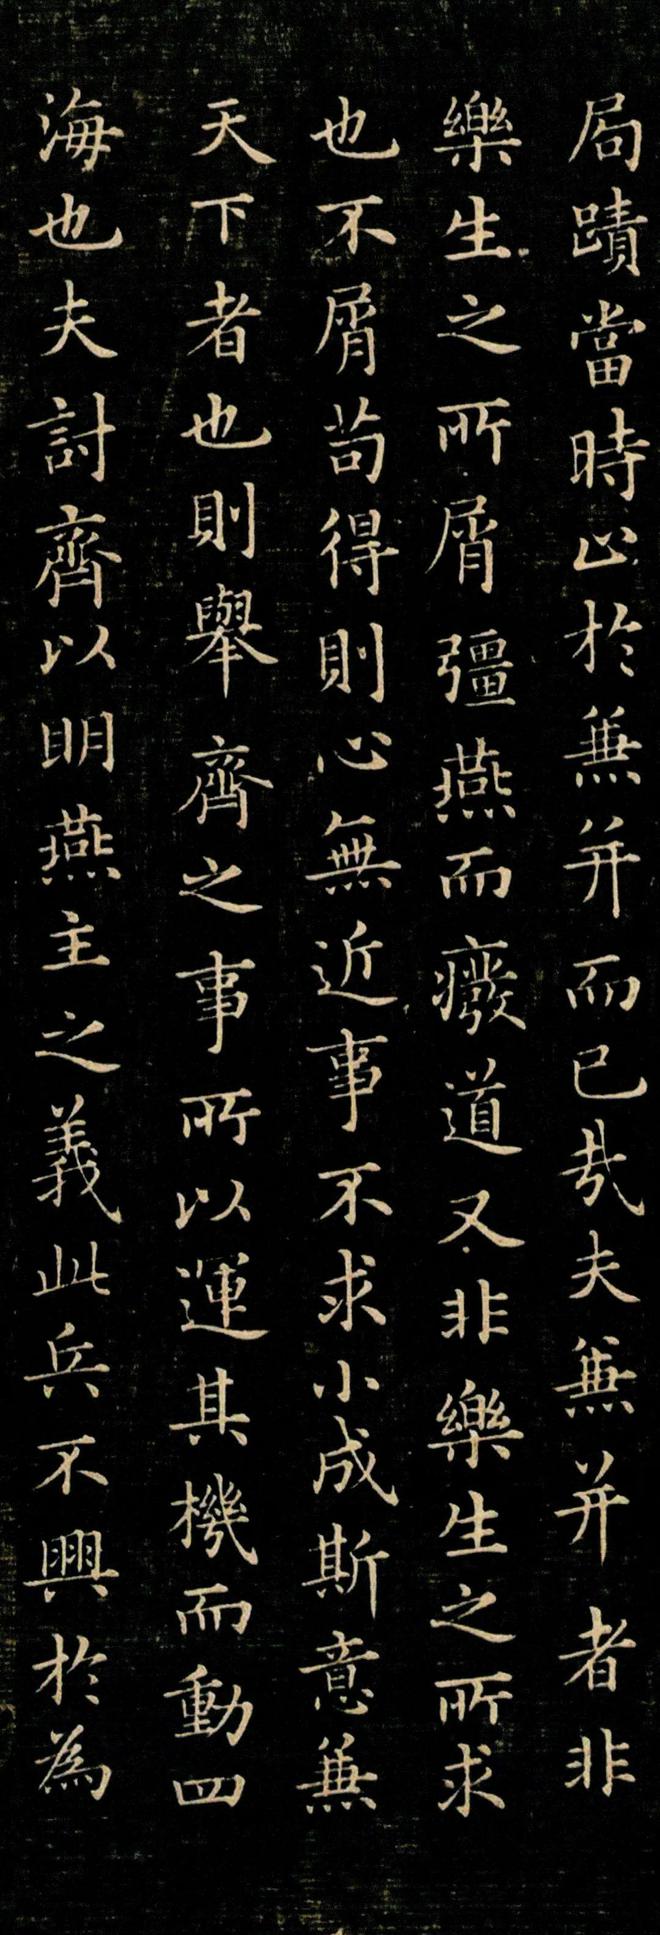 局蹟當時止於兼并而已哉夫兼并者非
樂生之所屑彊燕而癈道又非樂生之所求
也不屑苟得則心無近事不求小成斯意兼
天下者也則舉齊之事所以運其機而動四
海也夫討齊以明燕主之義此兵不興於為